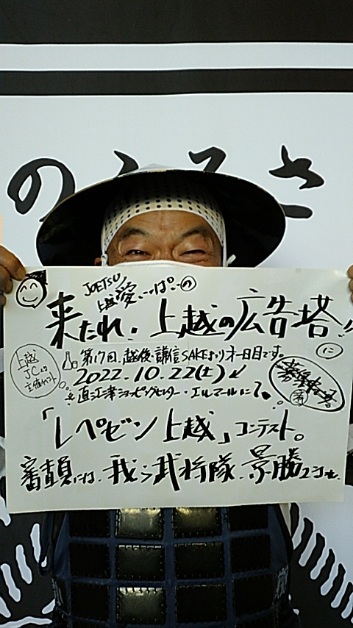 のふるさ
JOETSU
上越愛いっぱいの
来たれ!上越の広告塔!!
に
上越
JCさん
主催だっ!
第17回、越後・謙信SAKEまつり 一日目です。
2022.10.22(土)
直江津ショッピングセンター・エルマールにて
「レペゼン上越」コンテスト。
審査員には、我ら武将隊、景勝